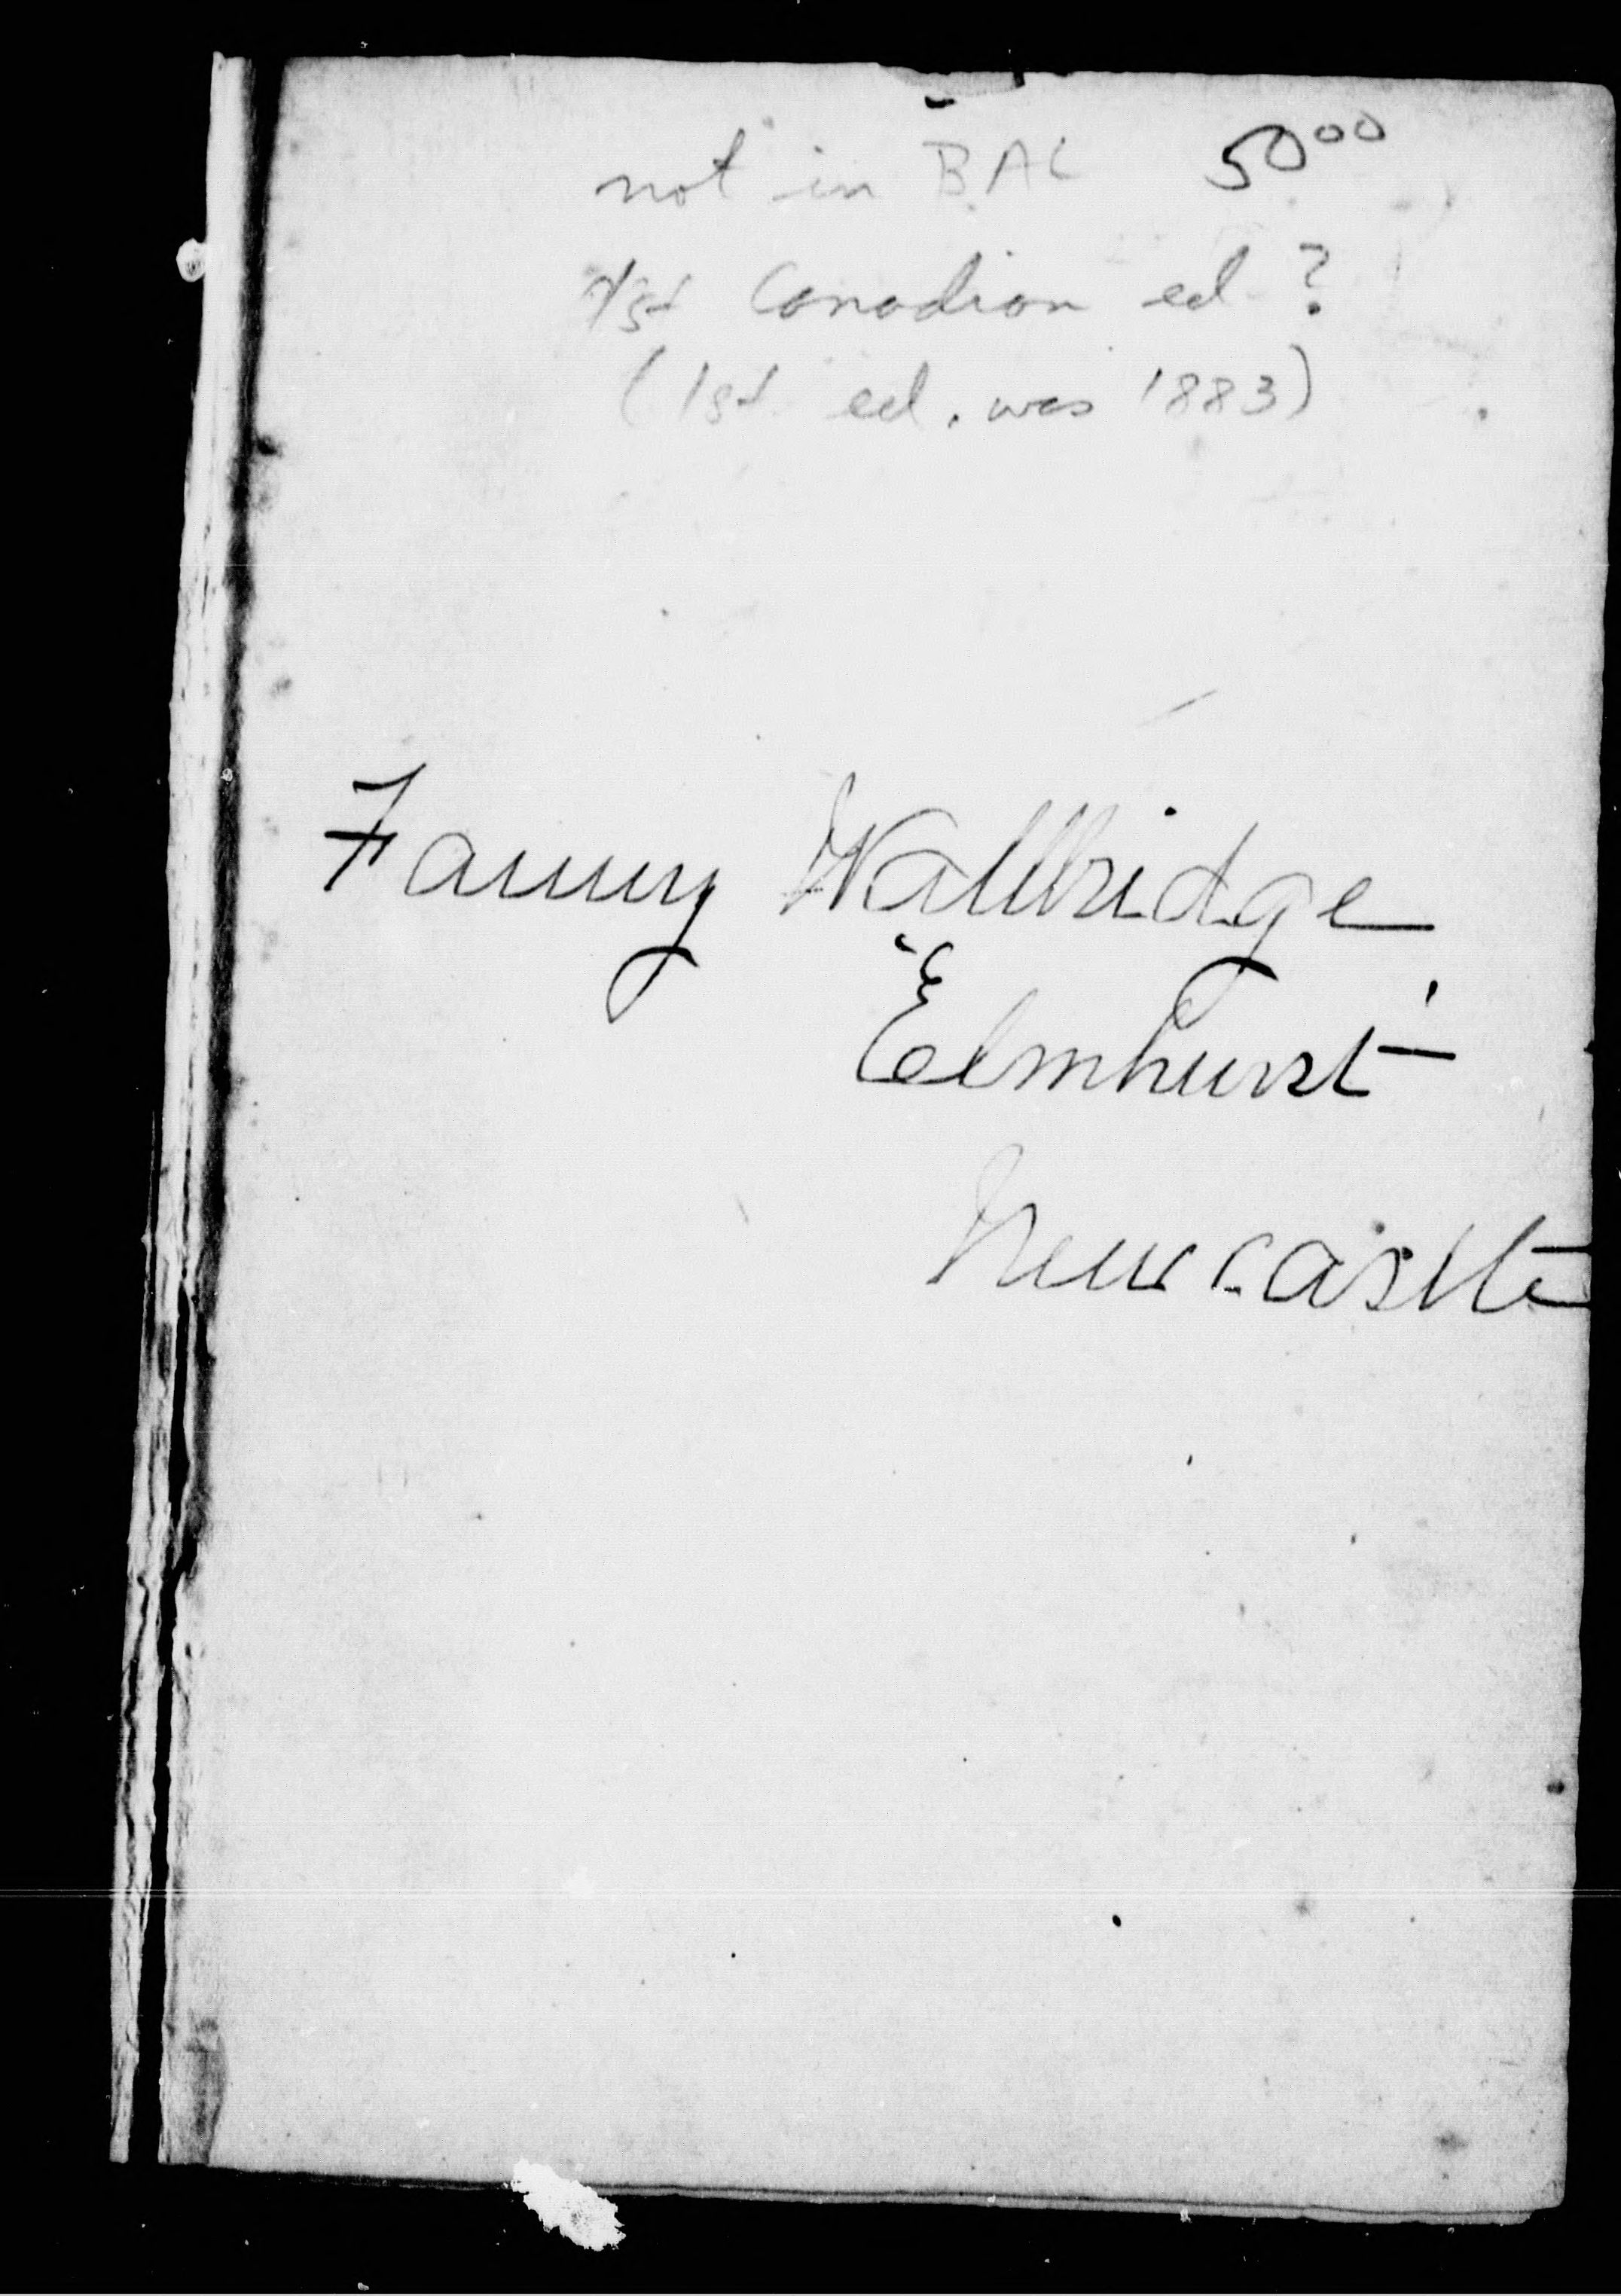 not in BAL 50⁰⁰
1st Canadian ed ?
(1st ed. was 1883)
Fanny Wallbridge
Elmhurst
Newcastle